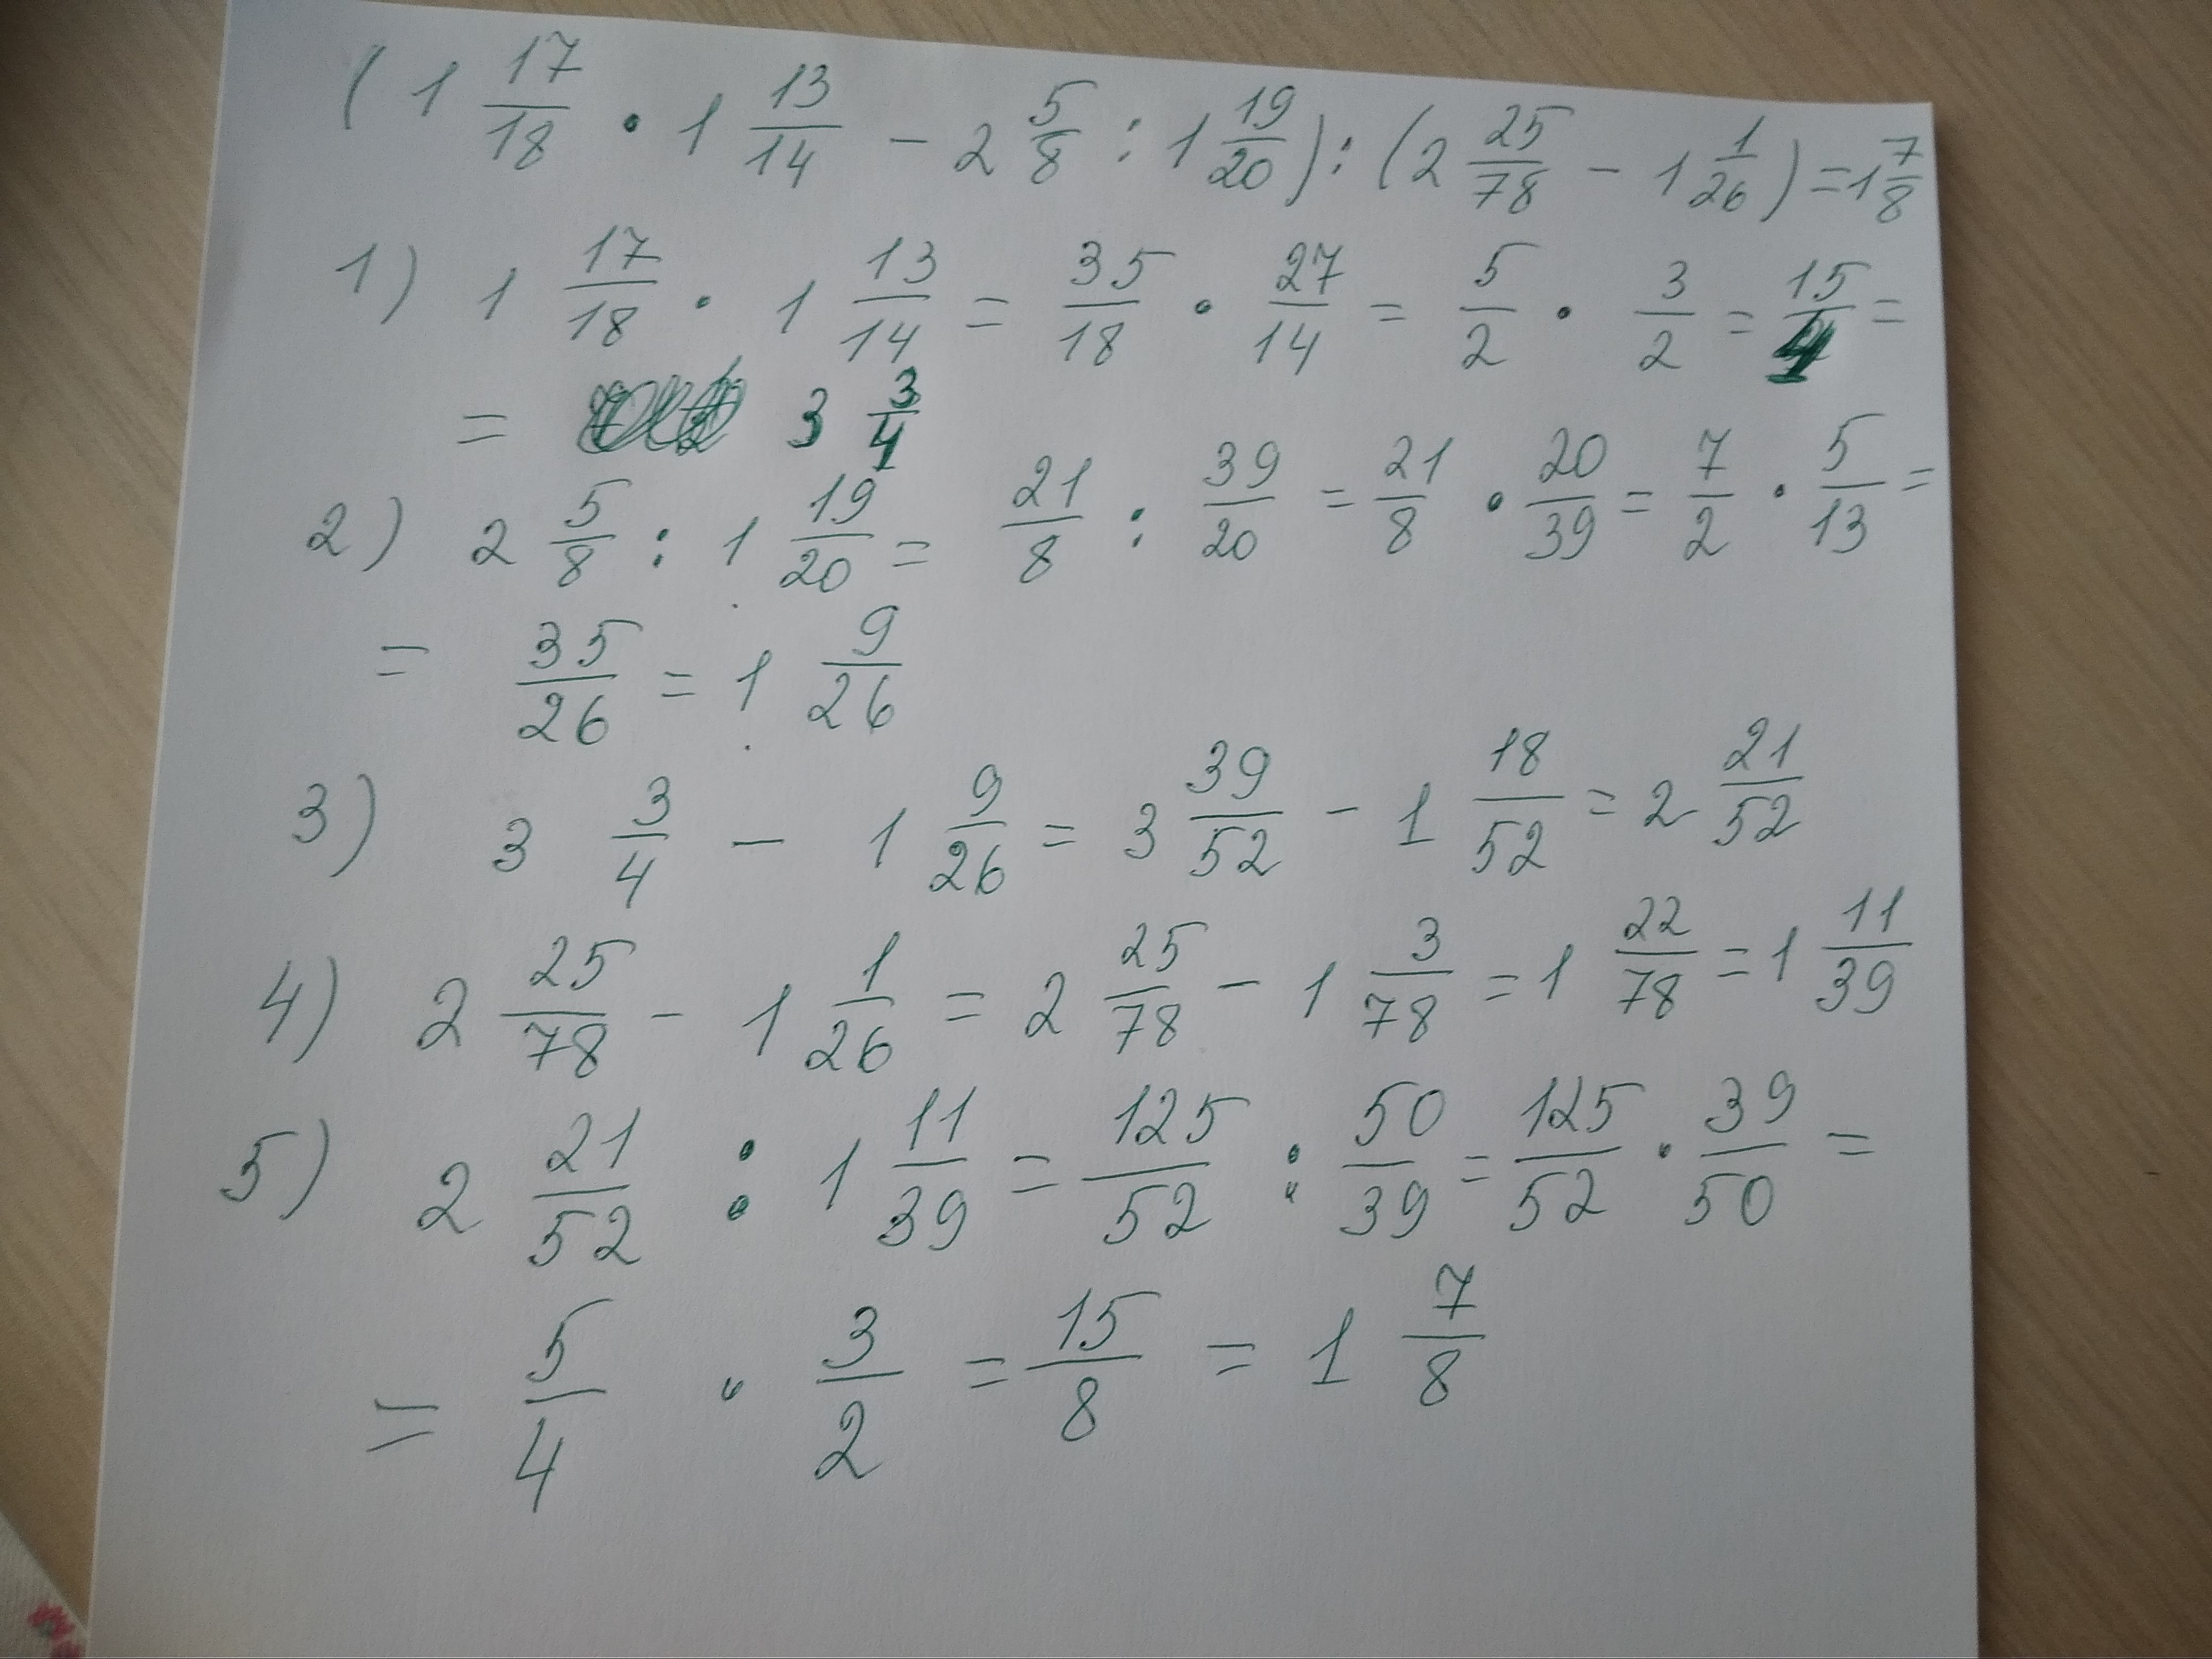 (1 17/18 · 1 13/14 − 2 5/8 : 1 19/20) : (2 25/78 − 1 1/26) = 1 7/8
1) 1 17/18 · 1 13/14 = 35/18 · 27/14 = 5/2 · 3/2 = 15/4 =
= 3 3/4
2) 2 5/8 : 1 19/20 = 21/8 : 39/20 = 21/8 · 20/39 = 7/2 · 5/13 =
= 35/26 = 1 9/26
3) 3 3/4 − 1 9/26 = 3 39/52 − 1 18/52 = 2 21/52
4) 2 25/78 − 1 1/26 = 2 25/78 − 1 3/78 = 1 22/78 = 1 11/39
5) 2 21/52 : 1 11/39 = 125/52 : 50/39 = 125/52 · 39/50 =
= 5/4 · 3/2 = 15/8 = 1 7/8